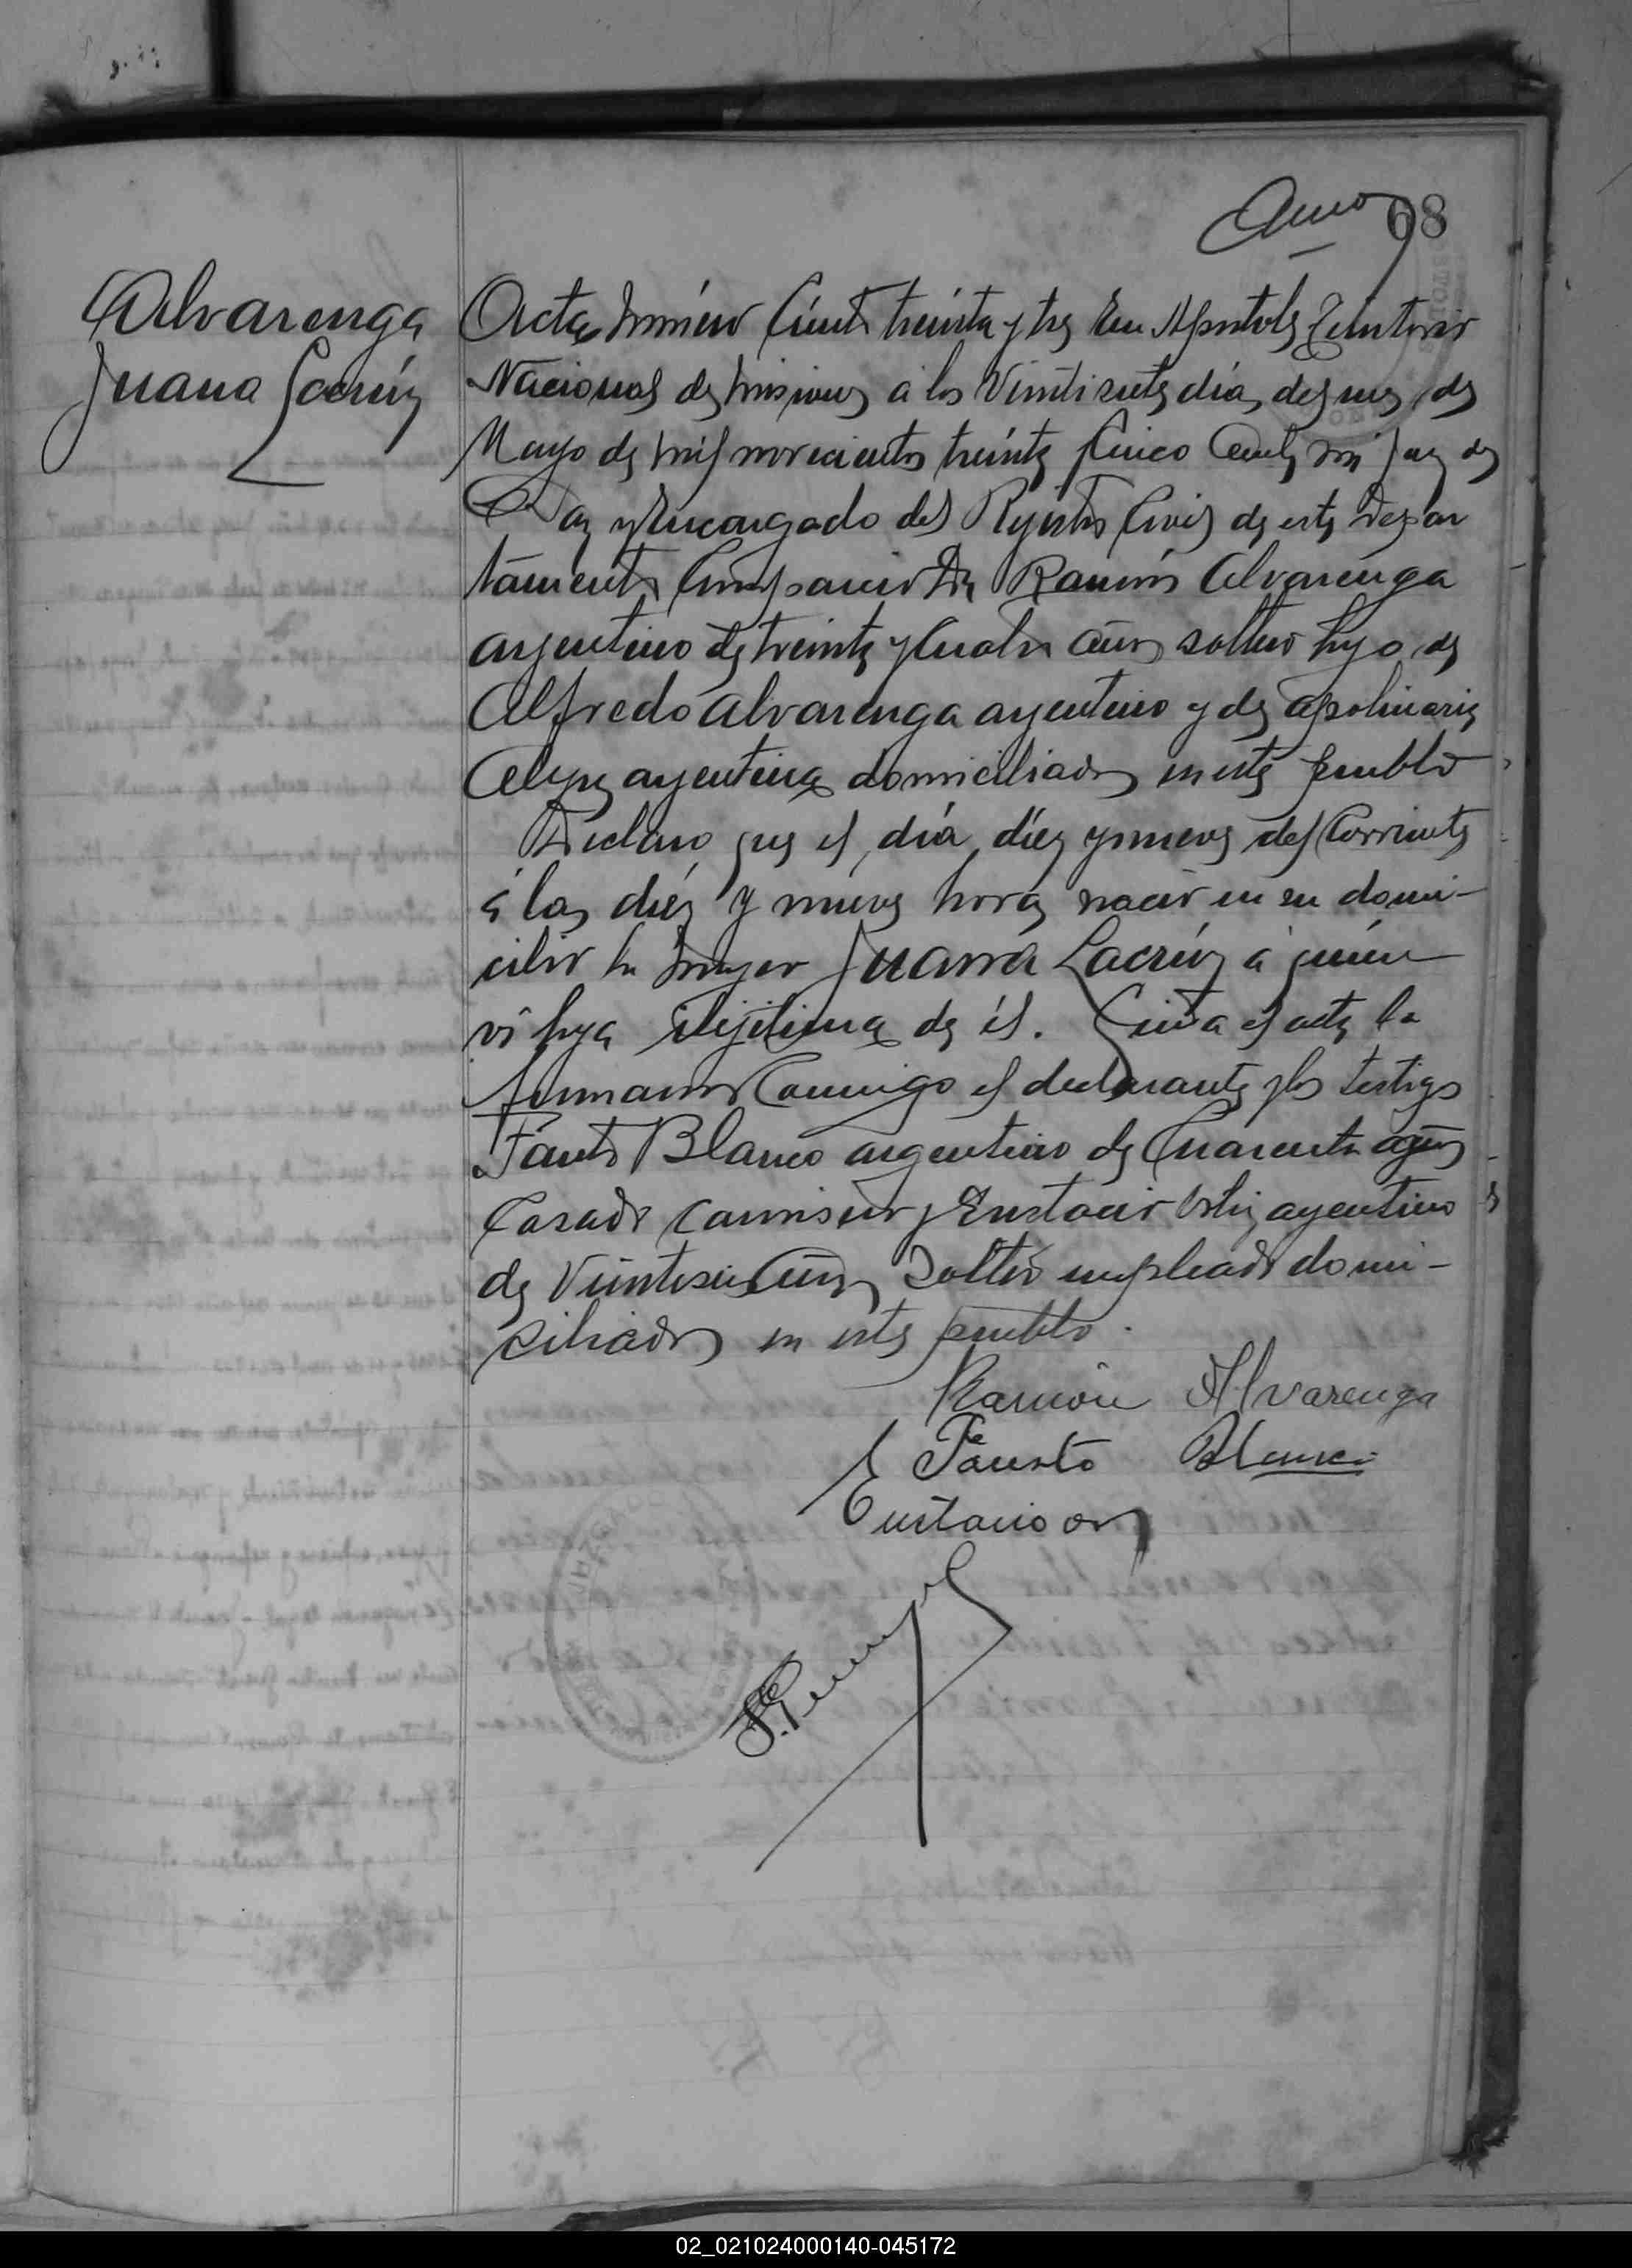 68
Alvarenga
Juana Lacruz
Acta número Ciento treinta y tres En Apostoles Territorio
Nacional de Misiones a los Veintisiete dias del mes de
Mayo de mil novecientos treinta Cinco Ante mi Juez de
Paz y Encargado del Rejistro Civil de este Depar
tamento Compareció Dn Ramón Alvarenga
argentino de treinta y Cuatro años soltero hijo de
Alfredo Alvarenga argentino y de Apolinaria
argentina domiciliados en este pueblo
Declaro que el día diez y nueve del Corriente
á las diéz y nueve horas nació en su domi-
cilio la mujer Juana Lacrúz á quién
ví hija ilejitima de él. Leida el acta la
firmaron Conmigo el declarante y los testigos
Fausto Blanco argentino de Cuarenta años
Casado y Eustacio Ortiz argentino
de Veintiseis años Soltero empleado domi-
ciliados en este pueblo.
Ramón Alvarenga
Fausto Blanco
Eustacio
02_021024000140-045172